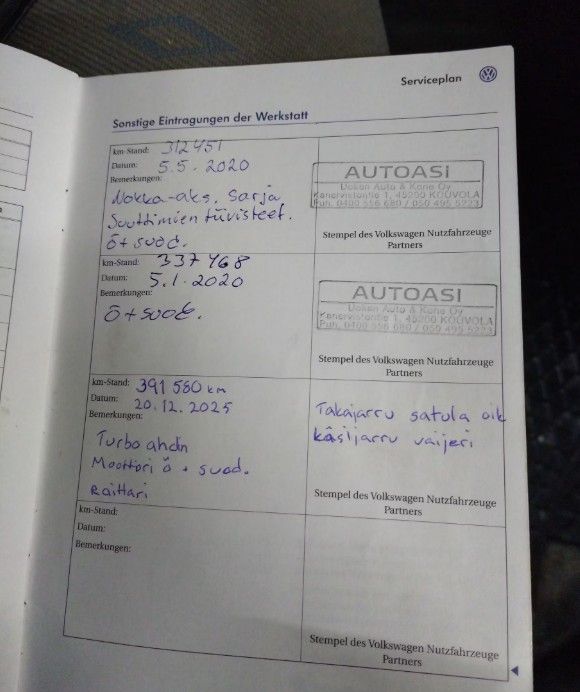 Serviceplan
Sonstige Eintragungen der Werkstatt
km-Stand: 312451
Datum: 5.5.2020
Bemerkungen:
Nokka-aks. Sarja
Suuttimien tiivisteet.
ö+suod.
AUTOASI
Dokan Auto & Kone Oy
Kanervistontie 1, 45200 KOUVOLA
Puh. 0400 556 680 / 050 495 5223
Stempel des Volkswagen Nutzfahrzeuge
Partners
km-Stand: 337468
Datum: 5.1.2020
Bemerkungen:
ö+suod.
AUTOASI
Dokan Auto & Kone Oy
Kanervistontie 1, 45200 KOUVOLA
Puh. 0400 556 680 / 050 495 5223
Stempel des Volkswagen Nutzfahrzeuge
Partners
km-Stand: 391580 km
Datum: 20.12.2025
Bemerkungen:
Turbo ahdin
Moottori ö + suod.
Raittari
Takajarru satula oik
käsijarru vaijeri
Stempel des Volkswagen Nutzfahrzeuge
Partners
km-Stand:
Datum:
Bemerkungen:
Stempel des Volkswagen Nutzfahrzeuge
Partners